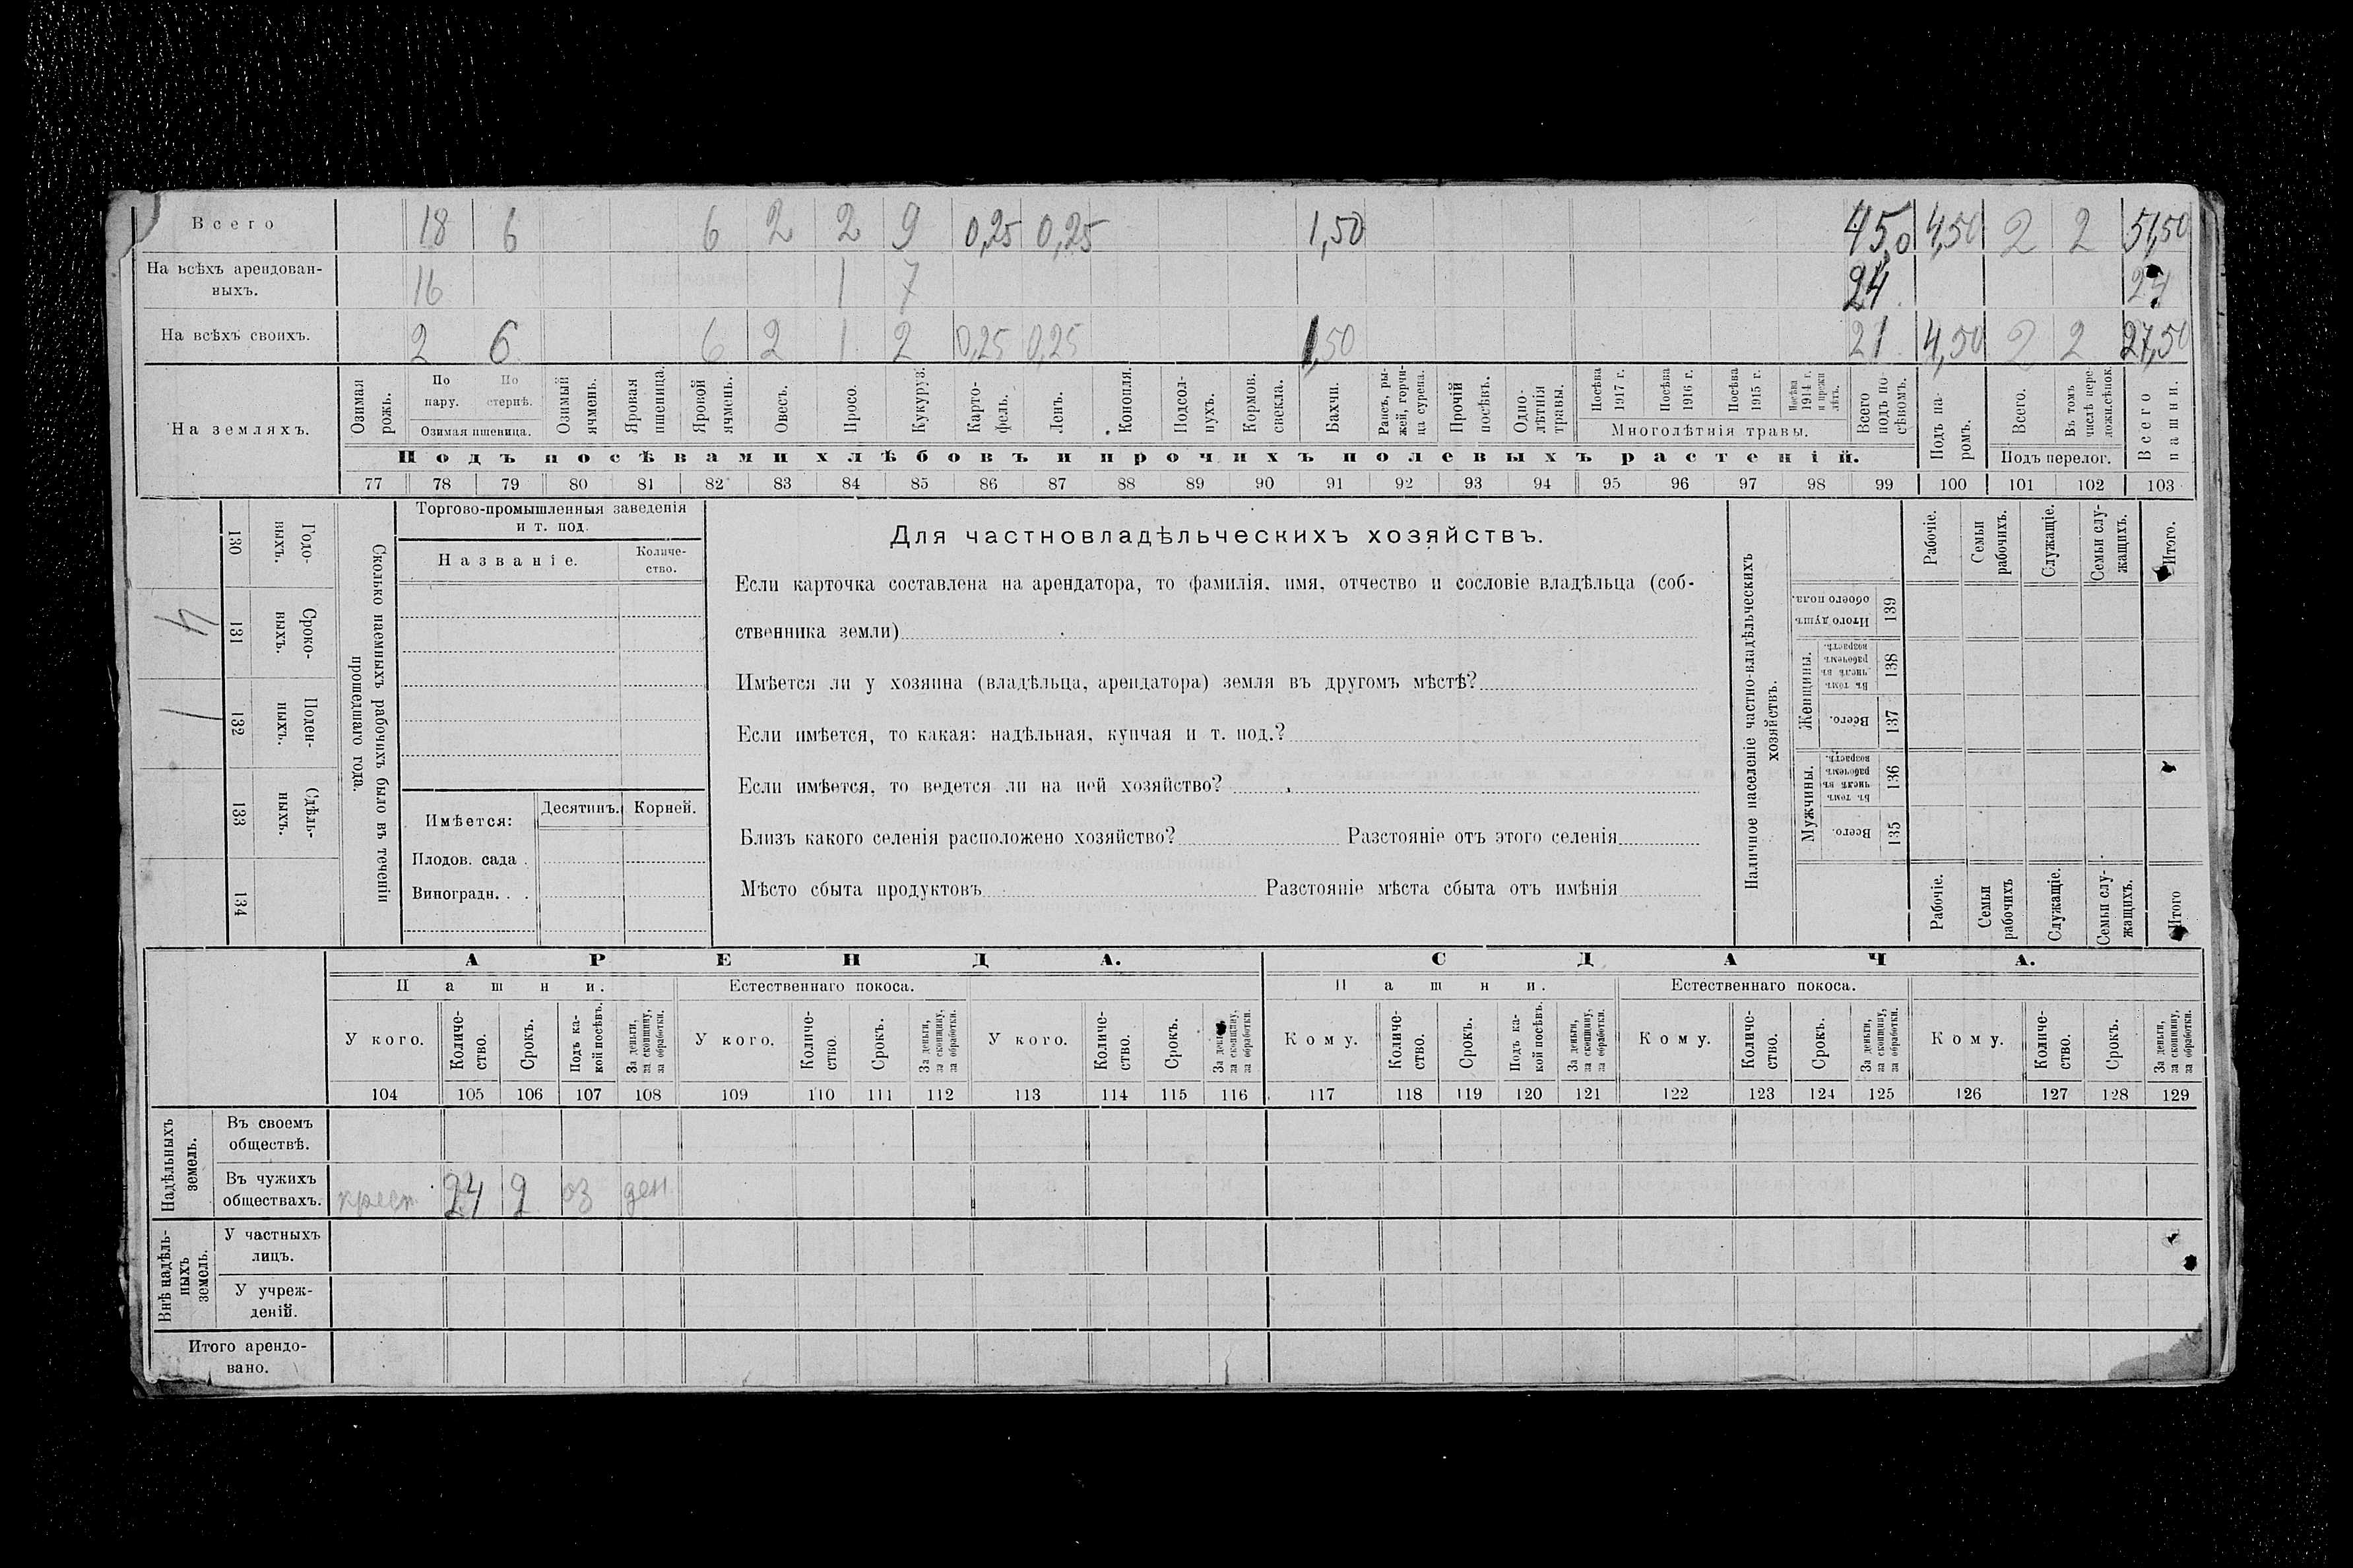 Всего 18 6 6 2 2 9 0,25 0,25 1,50 45,0 4,50 2 2 51,50
На всѣхъ арендован-
ныхъ. 16 1 7 24 24
На всѣхъ своихъ. 2 6 6 2 1 2 0,25 0,25 1,50 21 4,50 2 2 27,50
На земляхъ.
Озимая рожь.
По пару.
По стернѣ.
Озимая пшеница.
Озимый ячмень.
Яровая пшеница.
Яровой ячмень.
Овесъ.
Просо.
Кукуруз.
Карто-
фель.
Ленъ.
Конопля.
Подсол-
нухъ.
Кормов. свекла.
Бахчи.
Рапсъ, ры-
жей, горчи-
ца сурепа.
Прочій посѣвъ.
Одно-
лѣтнія травы.
Посѣва 1917 г.
Посѣва 1916 г.
Посѣва 1915 г.
Посѣва 1914 г. и прежн лѣтъ.
Многолѣтнія травы.
Всего подъ по-
сѣвомъ.
Подъ па-
ромъ.
Всего.
Въ томъ числѣ пере-
ложн.сѣнок.
Подъ перелог.
Всего пашни.
Подъ посѣвами хлѣбовъ и прочихъ полевыхъ растеній.
77 78 79 80 81 82 83 84 85 86 87 88 89 90 91 92 93 94 95 96 97 98 99 100 101 102 103
4
1
130 131 132 133 134
Годо-
ныхъ.
Сроко-
ныхъ.
Поден-
ныхъ.
Сдѣль-
ныхъ.
Сколько наемныхъ рабочихъ было въ теченіи
прошедшаго года.
Торгово-промышленныя заведенія
и т. под.
Названіе.
Количе-
ство.
Имѣется:
Десятинъ.
Корней.
Плодов. сада .
Виноградн. . .
Для частновладѣльческихъ хозяйствъ.
Если карточка составлена на арендатора, то фамилія, имя, отчество и сословіе владѣльца (соб-
ственника земли)
Имѣется ли у хозяина (владѣльца, арендатора) земля въ другомъ мѣстѣ?
Если имѣется, то какая: надѣльная, купчая и т. под.?
Если имѣется, то ведется ли на ней хозяйство?
Близъ какого селенія расположено хозяйство? Разстояніе отъ этого селенія
Мѣсто сбыта продуктовъ Разстояніе мѣста сбыта отъ имѣнія
Наличное населеніе частно-владѣльческихъ
хозяйствъ.
Рабочіе.
Семьи рабочихъ.
Служащіе.
Семьи слу-
жащихъ.
Итого.
Итого душъ обоего пола.
139
Женщины.
Въ томъ числѣ въ рабочемъ возрастѣ.
138
Всего.
137
Мужчины.
Въ томъ числѣ въ рабочемъ возрастѣ.
136
Всего.
135
Рабочіе.
Семьи рабочихъ
Служащіе.
Семьи слу-
жащихъ.
Итого
АРЕНДА.
СДАЧА.
Пашни.
Естественнаго покоса.
Пашни.
Естественнаго покоса.
У кого.
Количе-
ство.
Срокъ.
Подъ ка-
кой посѣвъ.
За деньги, за скопщину, за обработки.
У кого.
Количе-
ство.
Срокъ.
За деньги, за скопщину, за обработки.
У кого.
Количе-
ство.
Срокъ.
За деньги, за скопщину, за обработки.
Кому.
Количе-
ство.
Срокъ.
Подъ ка-
кой посѣвъ.
За деньги, за скопщину, за обработки.
Кому.
Количе-
ство.
Срокъ.
За деньги, за скопщину, за обработки.
Кому.
Количе-
ство.
Срокъ.
За деньги, за скопщину, за обработки.
104 105 106 107 108 109 110 111 112 113 114 115 116 117 118 119 120 121 122 123 124 125 126 127 128 129
Надѣльныхъ
земель.
Въ своемъ
обществѣ.
Въ чужихъ
обществахъ. крест 24 2 оз ден
Внѣ надѣль-
ныхъ
земель.
У частныхъ
лицъ.
У учреж-
деній.
Итого арендо-
вано.